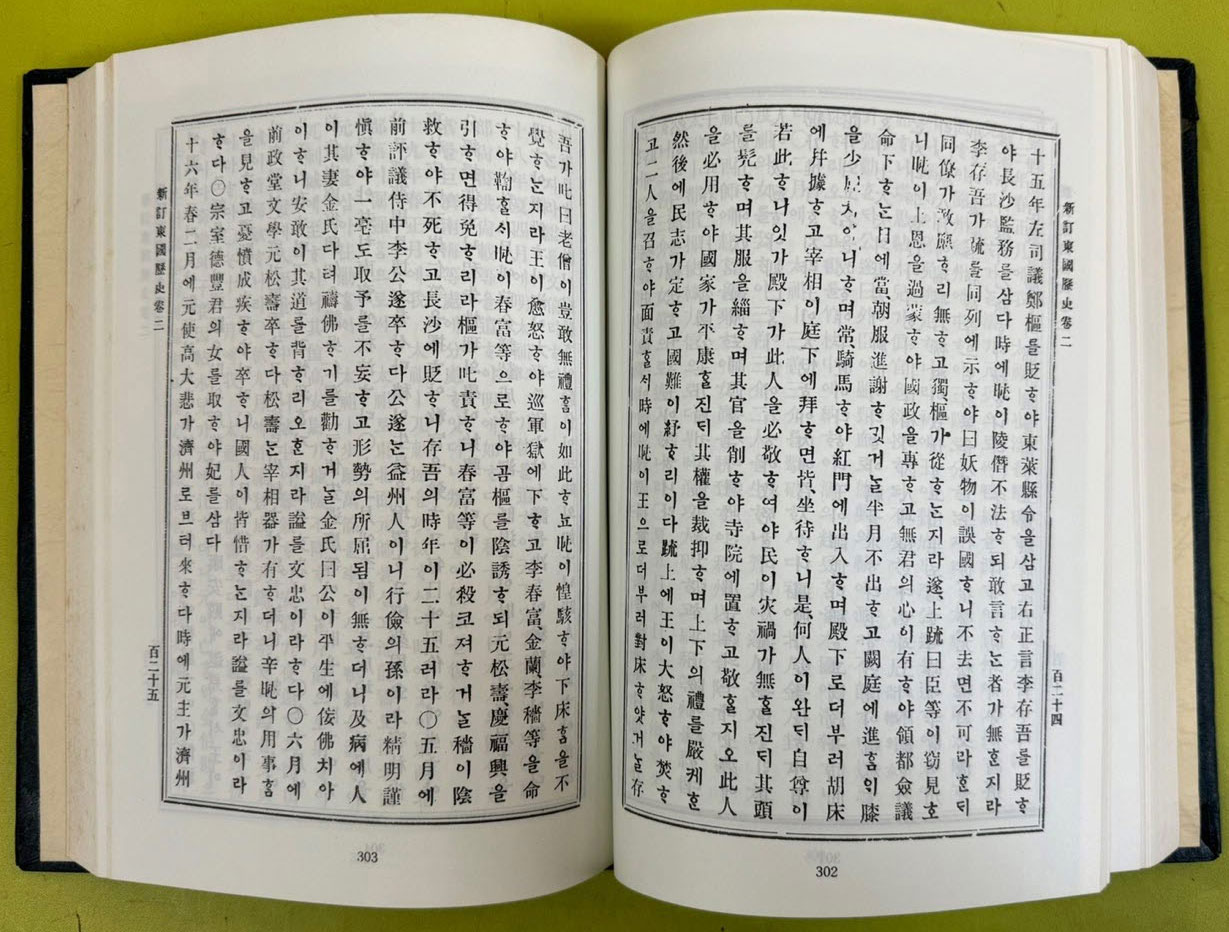 新訂東國歷史卷二
百二十四
十五年左司議鄭樞를貶ᄒᆞ야東萊縣令을삼고右正言李存吾를貶ᄒᆞ
야長沙監務를삼다時에旽이陵僭不法ᄒᆞ되敢言ᄒᆞᄂᆞᆫ者가無ᄒᆞᆫ지라
李存吾가疏를同列에示ᄒᆞ야曰妖物이誤國ᄒᆞ니不去면不可라ᄒᆞᆫᄃᆡ
同僚가敢應ᄒᆞ리無ᄒᆞ고獨,樞가從ᄒᆞᄂᆞᆫ지라遂,上疏曰臣等이窃見ᄒᆞ
니旽이上恩을過蒙ᄒᆞ야國政을專ᄒᆞ고無君의心이有ᄒᆞ야領都僉議
命下ᄒᆞᄂᆞᆫ日에當,朝服進謝ᄒᆞ깃거ᄂᆞᆯ半月不出ᄒᆞ고闕庭에進ᄒᆞᆷᄋᆡ膝
을少니ᄒᆞ며常,騎馬ᄒᆞ야紅門에出入ᄒᆞ며殿下로더부러胡床
에幷據ᄒᆞ고宰相이庭下에拜ᄒᆞ면皆,坐待ᄒᆞ니是,何人이완ᄃᆡ自尊이
若此ᄒᆞ니잇가殿下가此人을必敬ᄒᆞ여야民이灾禍가無ᄒᆞᆯ진ᄃᆡ其頭
를髠ᄒᆞ며其服을緇ᄒᆞ며其官을削ᄒᆞ야寺院에置ᄒᆞ고敬ᄒᆞᆯ지오此人
을必用ᄒᆞ야國家가平康ᄒᆞᆯ진ᄃᆡ其權을裁抑ᄒᆞ며上下의禮를嚴케ᄒᆞᆫ
然後에民志가定ᄒᆞ고國難이紓ᄒᆞ리이다疏上에王이大怒ᄒᆞ야焚ᄒᆞ
고二人을召ᄒᆞ야面責ᄒᆞᆯ서時에旽이王으로더부러對床ᄒᆞ얏거ᄂᆞᆯ存
302
吾가叱曰老僧이豈敢無禮ᄒᆞᆷ이如此ᄒᆞ뇨旽이惶駭ᄒᆞ야下床ᄒᆞᆷ을不
覺ᄒᆞᄂᆞᆫ지라王이愈怒ᄒᆞ야巡軍獄에下ᄒᆞ고李春富,金蘭,李穡等을命
ᄒᆞ야鞫ᄒᆞᆯ서旽이春富等으로ᄒᆞ야곰樞를陰誘ᄒᆞ되元松壽,慶福興을
引ᄒᆞ면得免ᄒᆞ리라樞가叱責ᄒᆞ니春富等이必殺코져ᄒᆞ거ᄂᆞᆯ穡이陰
救ᄒᆞ야不死ᄒᆞ고長沙에貶ᄒᆞ니存吾의時年이二十五러라〇五月에
前評議侍中李公遂卒ᄒᆞ다公遂ᄂᆞᆫ益州人이니行儉의孫이라精明謹
愼ᄒᆞ야一毫도取予를不妄ᄒᆞ고形勢의所屈됨이無ᄒᆞ더니及病에人
이其妻金氏다려禱佛ᄒᆞ기를勸ᄒᆞ거ᄂᆞᆯ金氏曰公이平生에侫佛치아
이ᄒᆞ니安敢이其道를背ᄒᆞ리오ᄒᆞᆫ지라謚를文忠이라ᄒᆞ다〇六月에
前政堂文學元松壽卒ᄒᆞ다松壽ᄂᆞᆫ宰相器가有ᄒᆞ더니辛旽의用事ᄒᆞᆷ
을見ᄒᆞ고憂憤成疾ᄒᆞ야卒ᄒᆞ니國人이皆惜ᄒᆞᄂᆞᆫ지라謚를文忠이라
ᄒᆞ다〇宗室德豐君의女를取ᄒᆞ야妃를삼다
十六年春二月에元使高大悲가濟州로브터來ᄒᆞ다時에元主가濟州
新訂東國歷史卷二
百二十五
303